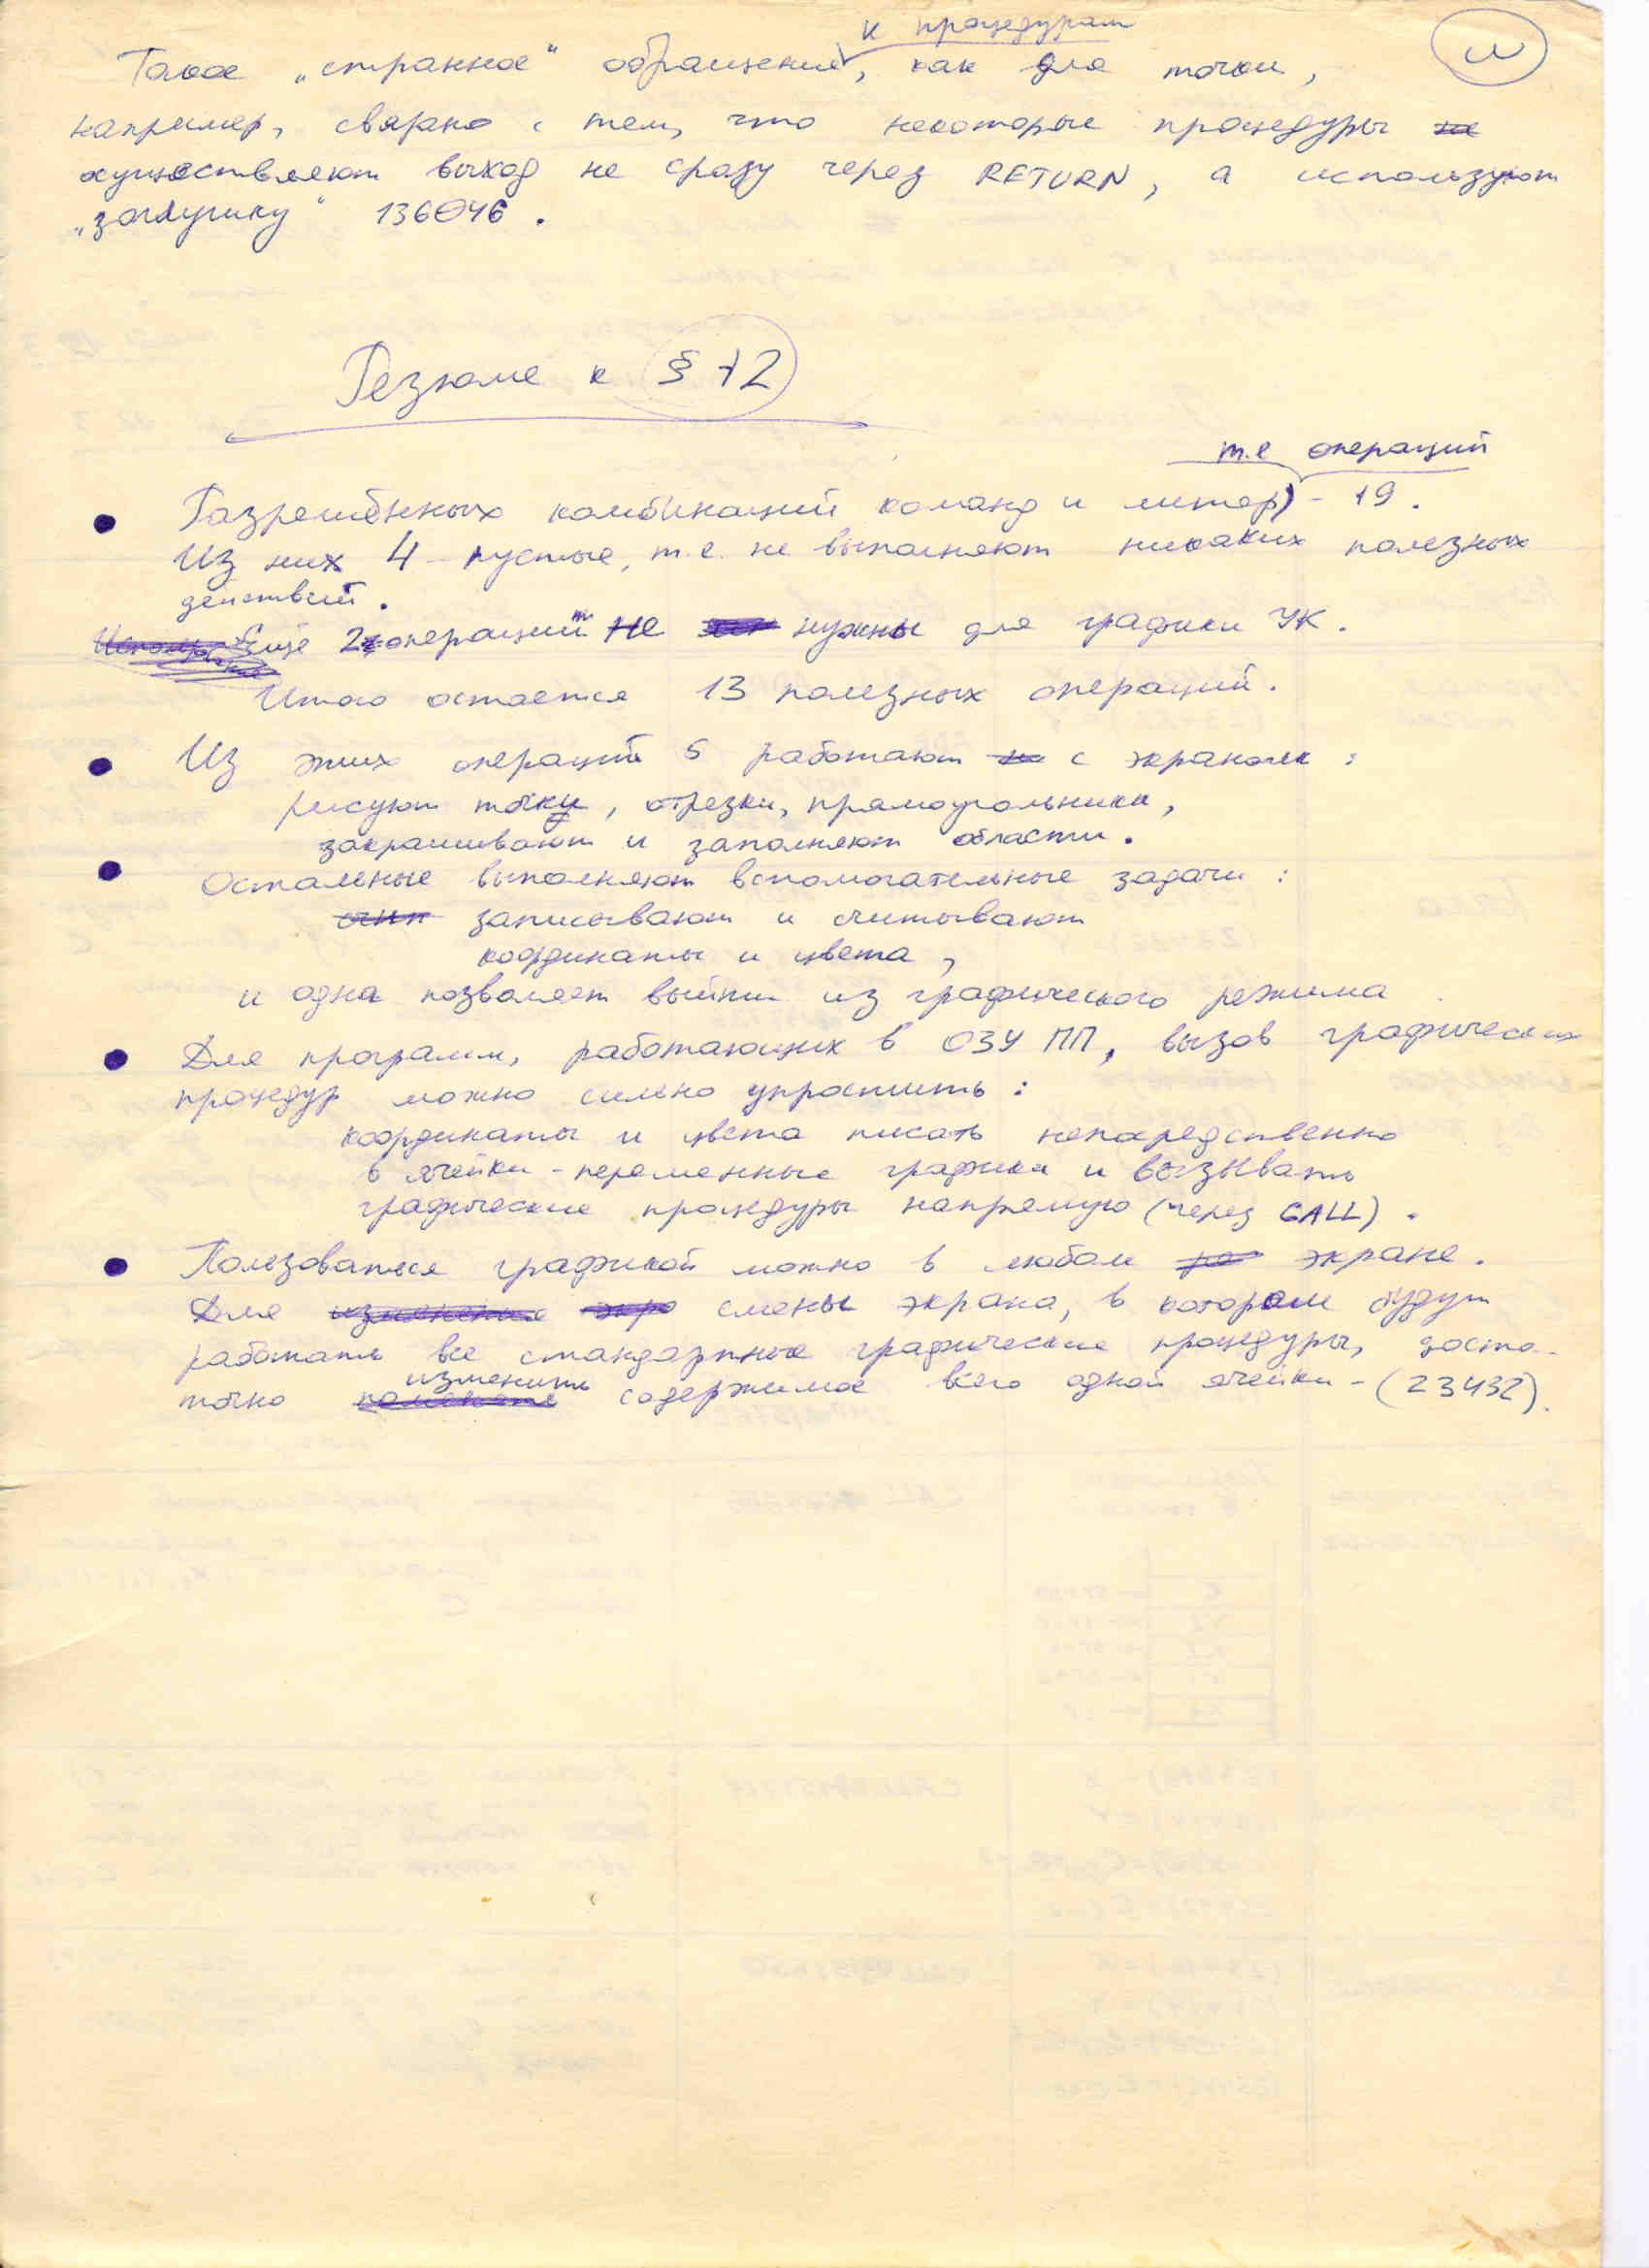 к процедурам
Такое „странное“ обращение, как для точки,
например, связано с тем, что некоторые процедуры не
осуществляют выход не сразу через RETURN, а используют
„заглушку“ 136046.
Резюме к § 12
т.е операций
Разрешённых комбинаций команд и литер) - 19.
Из них 4 - пустые, т.е. не выполняют никаких полезных
действий.
Еще 2 операции не нужны для графики УК.
Итого остается 13 полезных операций.
Из этих операций 5 работают с экраном:
рисуют точки, отрезки, прямоугольники,
закрашивают и заполняют области.
Остальные выполняют вспомогательные задачи:
записывают и считывают
координаты и цвета,
и одна позволяет выйти из графического режима
Для программ, работающих в ОЗУ ПП, вызов графических
процедур можно сильно упростить:
координаты и цвета писать непосредственно
в ячейки - переменные графики и вызывать
графические процедуры напрямую (через CALL).
Пользоваться графикой можно в любом экране.
Для изменения экра смены экрана, в котором будут
работать все стандартные графические процедуры, доста-
изменить
точно поменять содержимое всего одной ячейки - (23432).